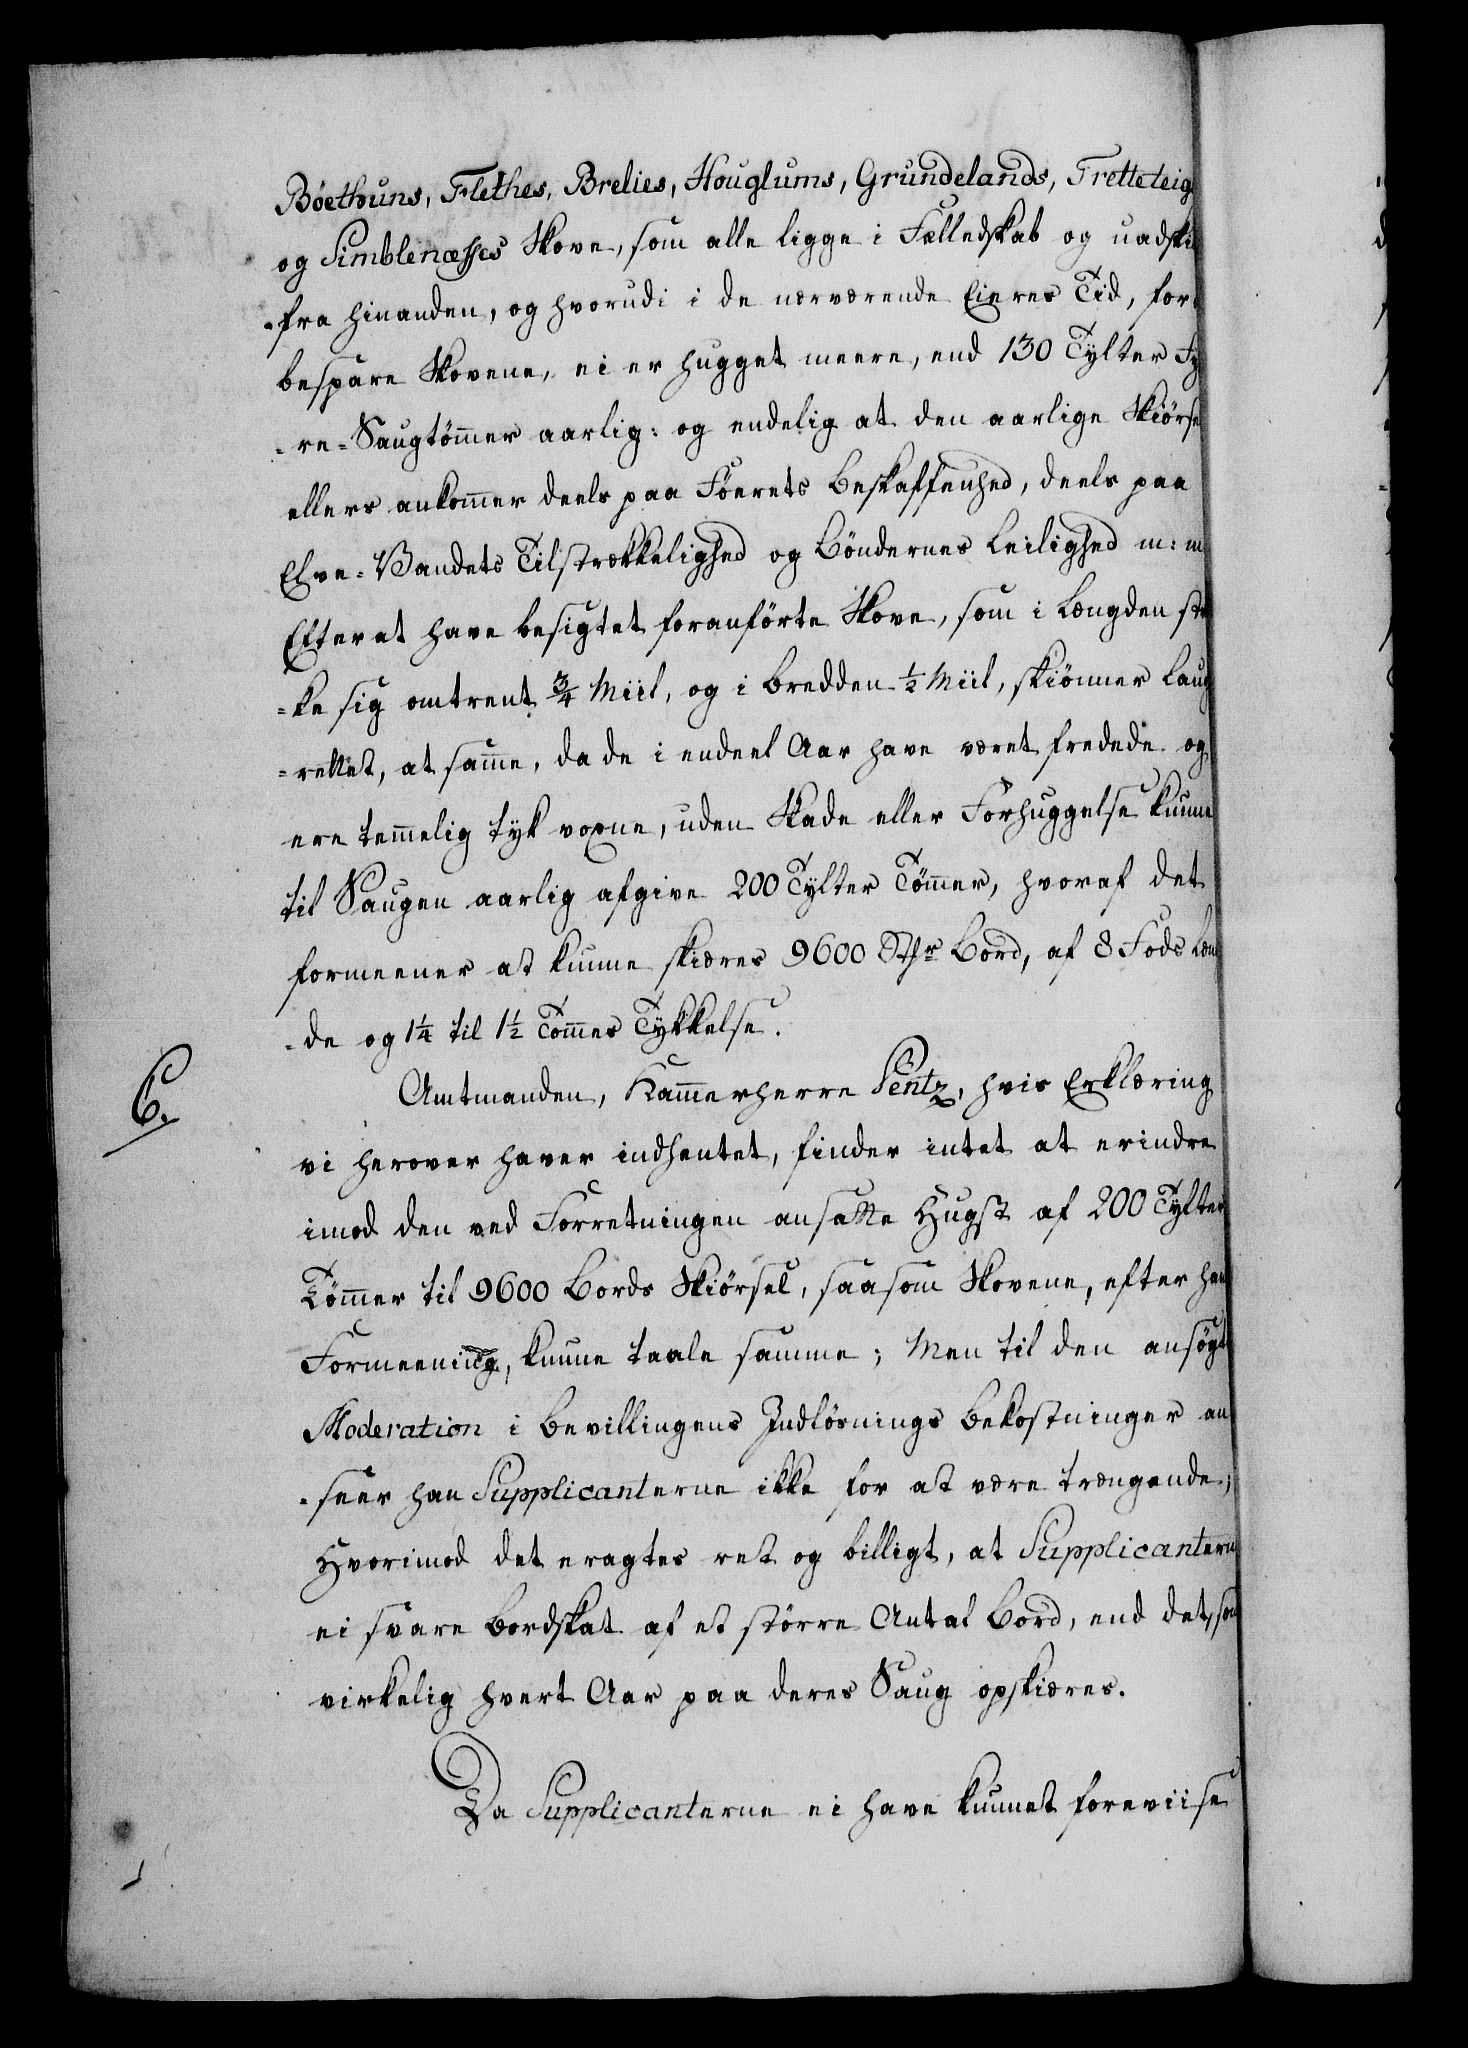 Böethuns, Flethes, Brelies, Houglums, Grundelands, Tretteteig
og Simblenæsses Skove, som alle ligge i Fælledskab og uadski
-fra hinanden, og hvorudi i de nærværende Eieres Tid, for
bespare Skovene, ei er hugget meere, end 130 Tylter Fy
-re-Saugtömmer aarlig: og endelig at den aarlige Skiörse
ellers ankommer deels paa Föerets Beskaffenhed, deels paa
Elve-Vandets Tilstrækkelighed og Böndernes Leilighed m: m
Efter at have besigtet foranförte Skove, som i Længden stræ
-ke sig omtrent 3/4 Miil, og i Bredden 1/2 Miil, skiönner Laug
-rettet, at samme, da de i endeel Aar have været fredede og
ere temmelig tyk voxne, uden Skade eller Forhuggelse kunne
til Saugen aarlig afgive 200 Tylter Tömmer, hvoraf det
formeener at kunne skiæres 9600 Stkr Bord, af 8 Fods Læng
-de og 1 1/4 til 1 1/2 Tommes Tykkelse.
6.
Amtmanden, Kammerherre Pentz, hvis Erklæring
vi herover haver indhentet, finder intet at erindre
imod den ved Forretningen ansatte Hugst af 200 Tylter
Tömmer til 9600 Bords Skiörsel, saasom Skovene, efter han
Formeening, kunne taale samme; Men til den ansögt
Moderation i Bevillingens Indlösnings Bekostninger an
-seer han Supplicanterne ikke for at være trængende;
Hvorimod det eragtes ret og billigt, at Supplicanterne
ei svare Bordskat af et större Antal Bord, end det, som
virkelig hvert Aar paa deres Saug opskiæres.
Da Supplicanterne ei have kunnet foreviise